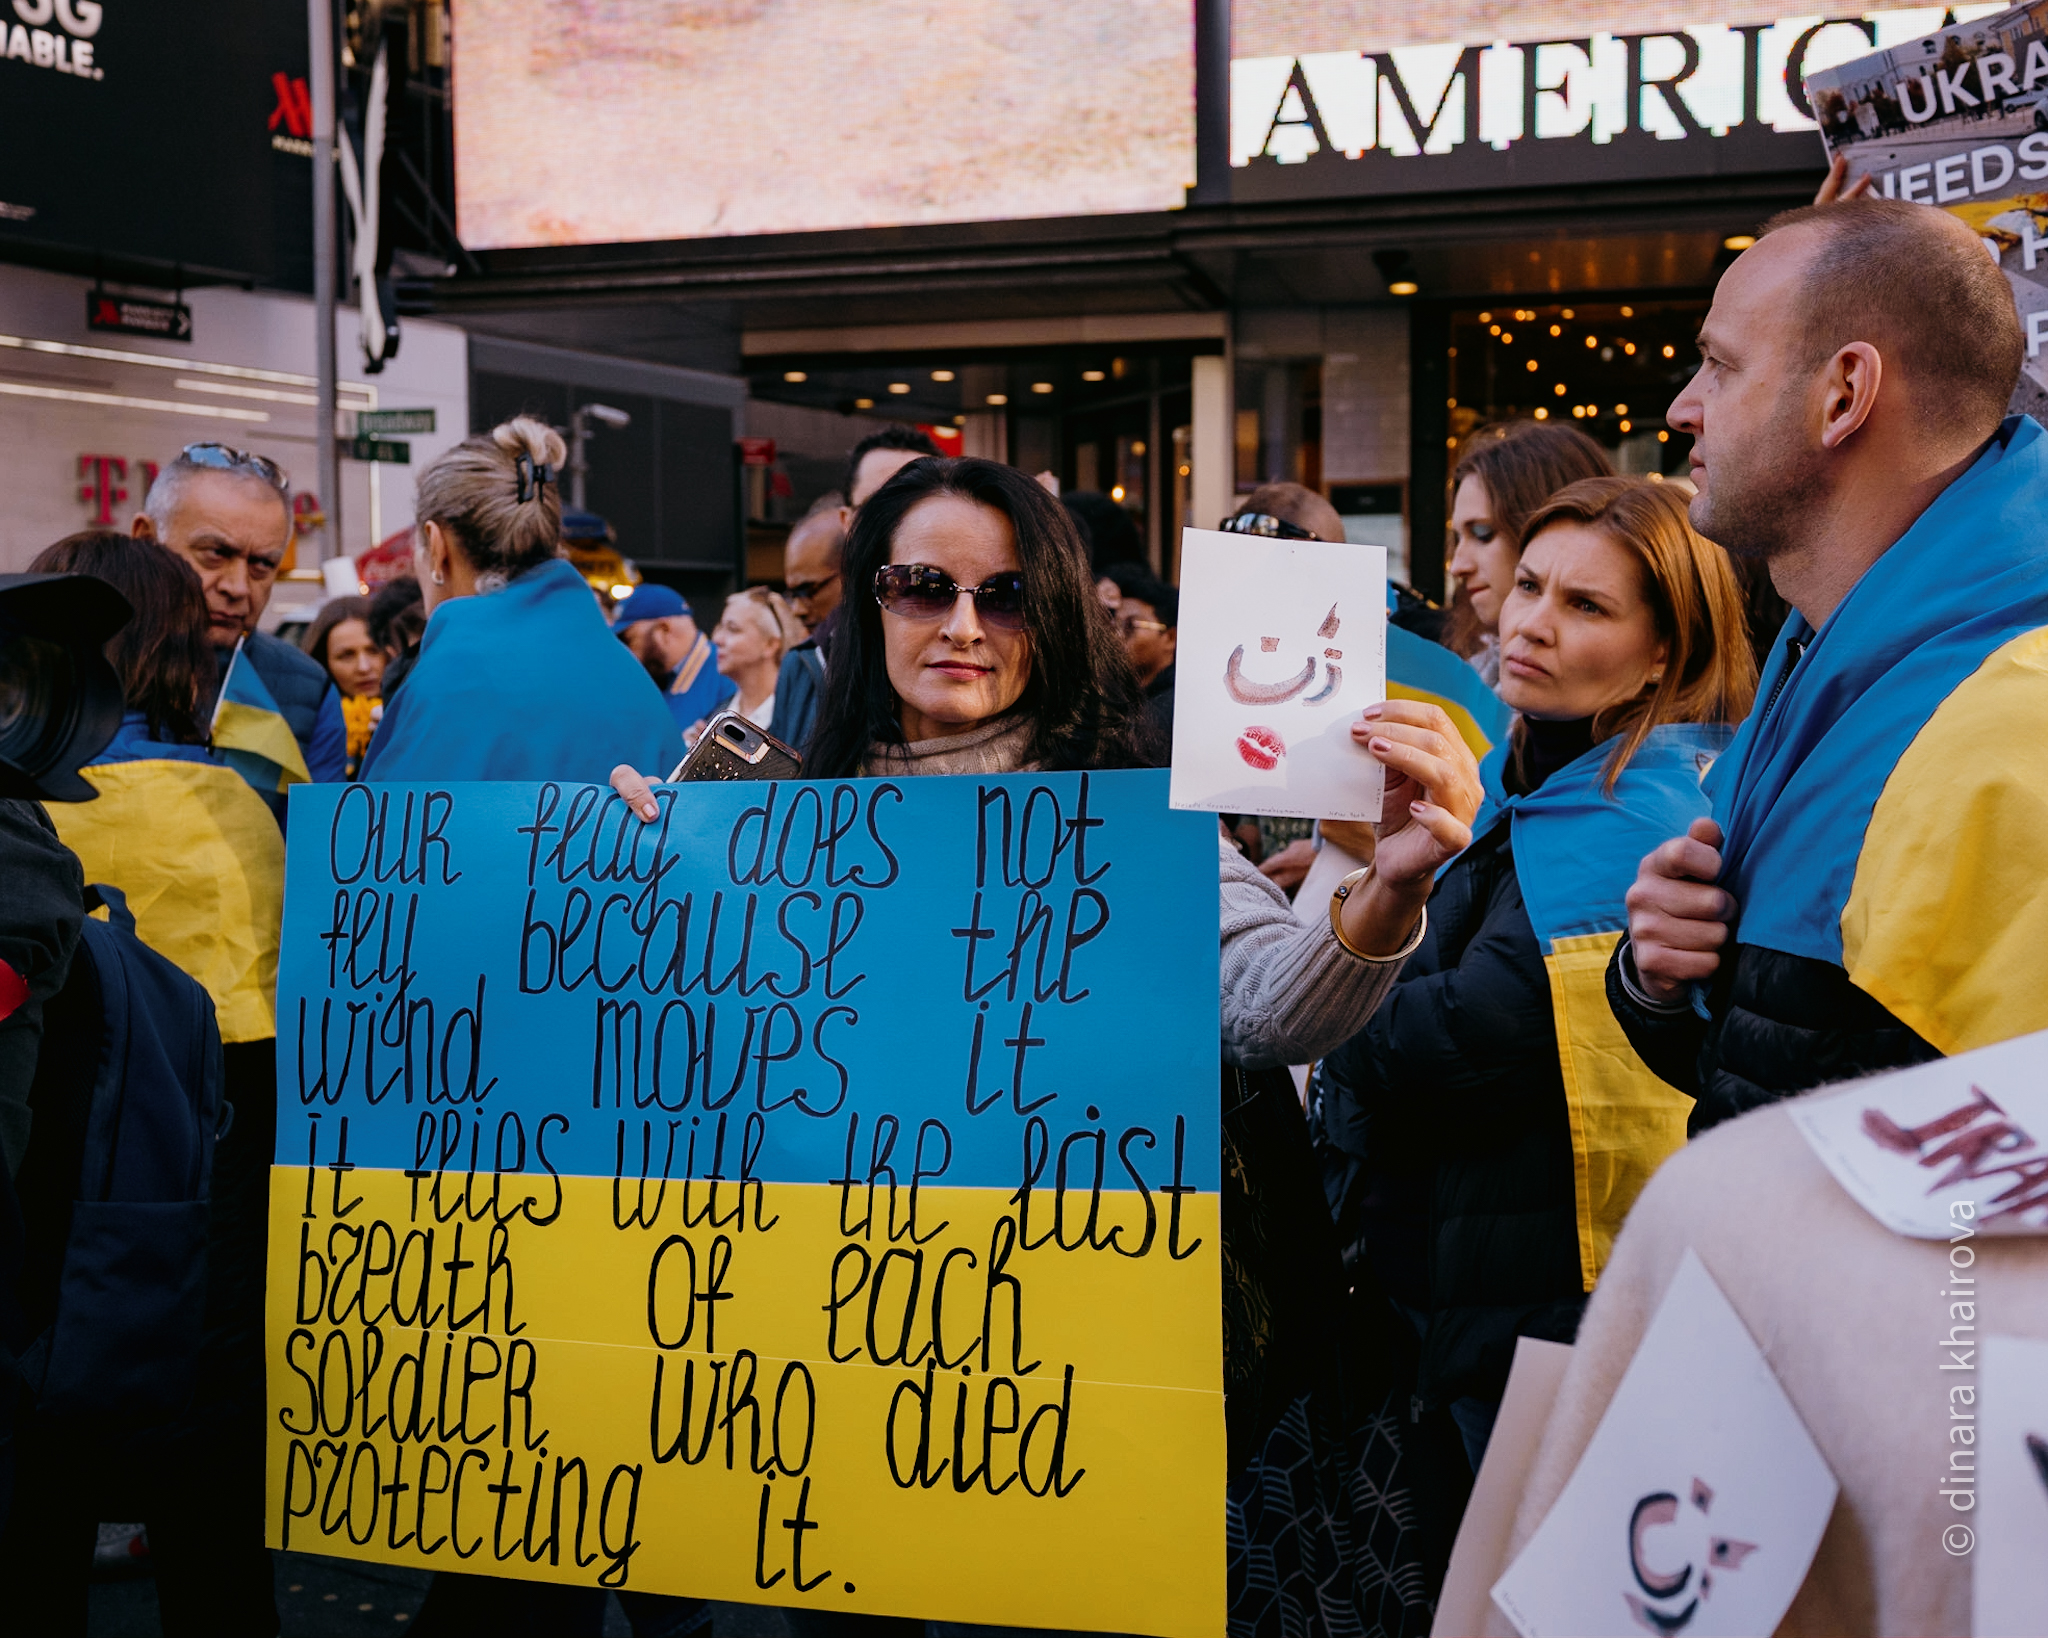 SG
ABLE.
AMERIC
UKRA
NEEDS
T M
Broadway
OUR flag does not
fly because the
wind moves it.
It flies with the last
breath of each
soldier who died
protecting it.
زن
IRA
زن
© dinara khairova